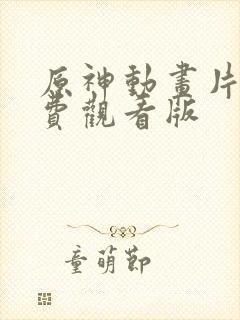 原神動畫片
費觀看版
童萌節